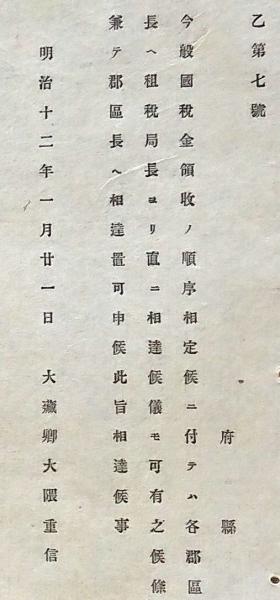 乙第七號
府縣
今般國税金領收ノ順序相定候ニ付テハ各郡區
長ヘ租税局長ヨリ直ニ相達候儀モ可有之候條
兼テ郡區長ヘ相達置可申候此旨相達候事
明治十二年一月廿一日 大藏卿大隈重信